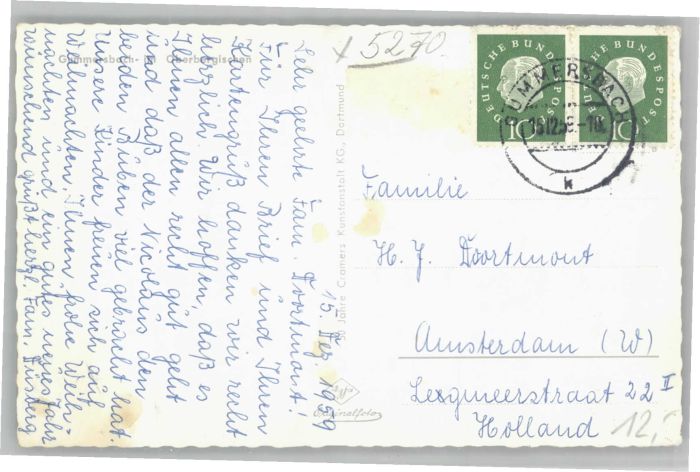 x 5270
Gummersbach im Oberbergischen
15. Dez. 1959
Sehr geehrte Fam. Doortmont!
Für Ihren Brief und Ihren
Kartengruß danken wir recht
herzlich. Wir hoffen, daß es
Ihnen allen recht gut geht
und daß der Nicolaus den
beiden Buben viel gebracht hat.
Unsere Kinder freuen sich auf
Weihnachten. Ihnen frohe Weih
nachten und ein gutes neues Jahr
wünschend grüßt herzl. Fam.
50 Jahre Cramers Kunstanstalt KG., Dortmund
Originalfoto
DEUTSCHE BUNDESPOST
10
DEUTSCHE BUNDESPOST
10
GUMMERSBACH
k
Familie
H. J. Doortmont
Amsterdam (W)
Lexgmeerstraat 22 II
Holland
12,